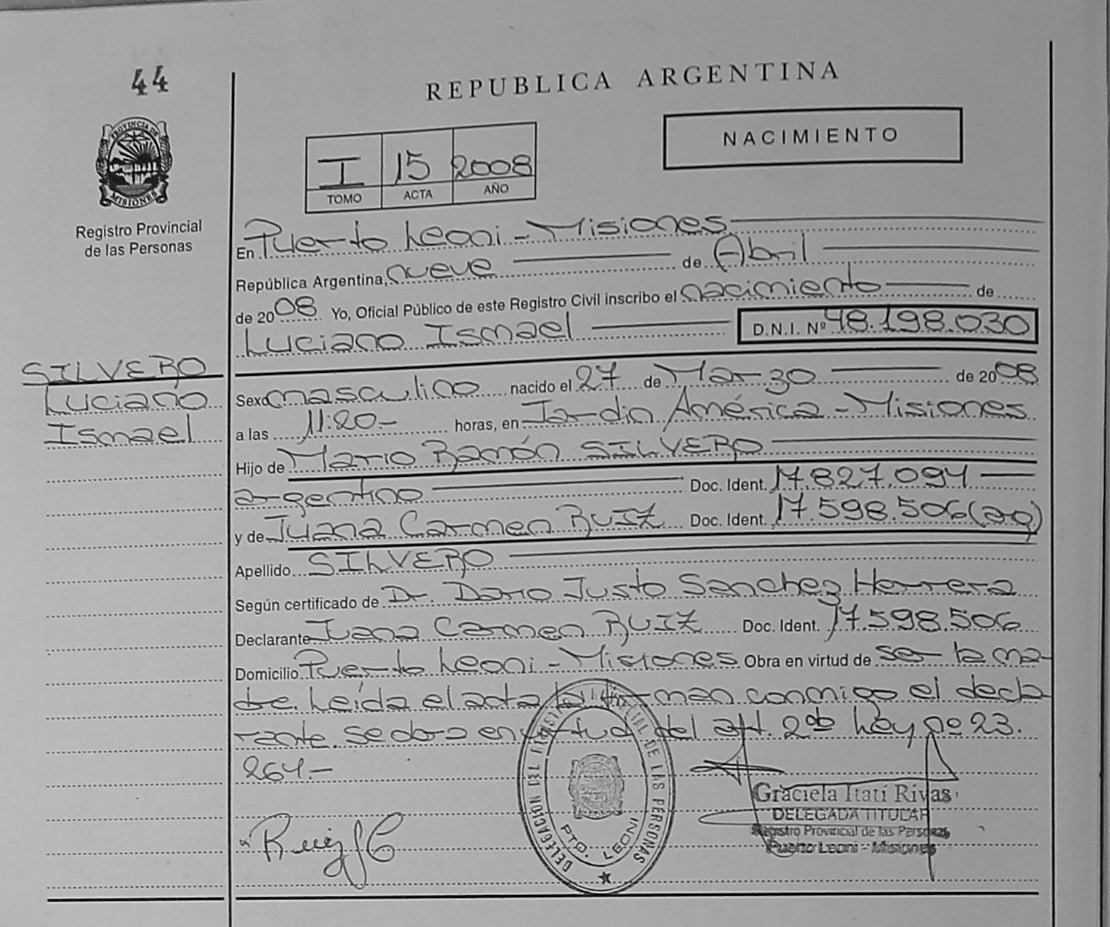 44
REPUBLICA ARGENTINA
NACIMIENTO
PROVINCIA DE MISIONES
Registro Provincial
de las Personas
I 15 2008
TOMO ACTA AÑO
En Puerto Leoni - Misiones
República Argentina, nueve de Abril
de 2008 Yo, Oficial Público de este Registro Civil inscribo el nacimiento de
Luciano Ismael D.N.I. Nº 48.198.030
SILVERO
Luciano
Ismael
Sexo masculino nacido el 27 de Marzo de 2008
a las 11:20- horas, en Jardín América - Misiones
Hijo de Mario Ramón SILVERO
argentino Doc. Ident. 17.827.094
y de Juana Carmen RUIZ Doc. Ident. 17.598.506 (arg)
Apellido SILVERO
Según certificado de Dr. Dario Justo Sanchez Herrera
Declarante Juana Carmen RUIZ Doc. Ident. 17.598.506
Domicilio Puerto Leoni - Misiones Obra en virtud de ser la ma-
dre. Leída el acta la firman conmigo el decla-
rante. Se obro en virtud del art. 2º Ley nº 23.
264-
Ruiz J C
DELEGACION DEL REGISTRO PROVINCIAL DE LAS PERSONAS
PTO. LEONI
Graciela Itatí Rivas
DELEGADA TITULAR
Registro Provincial de las Personas
Puerto Leoni - Misiones